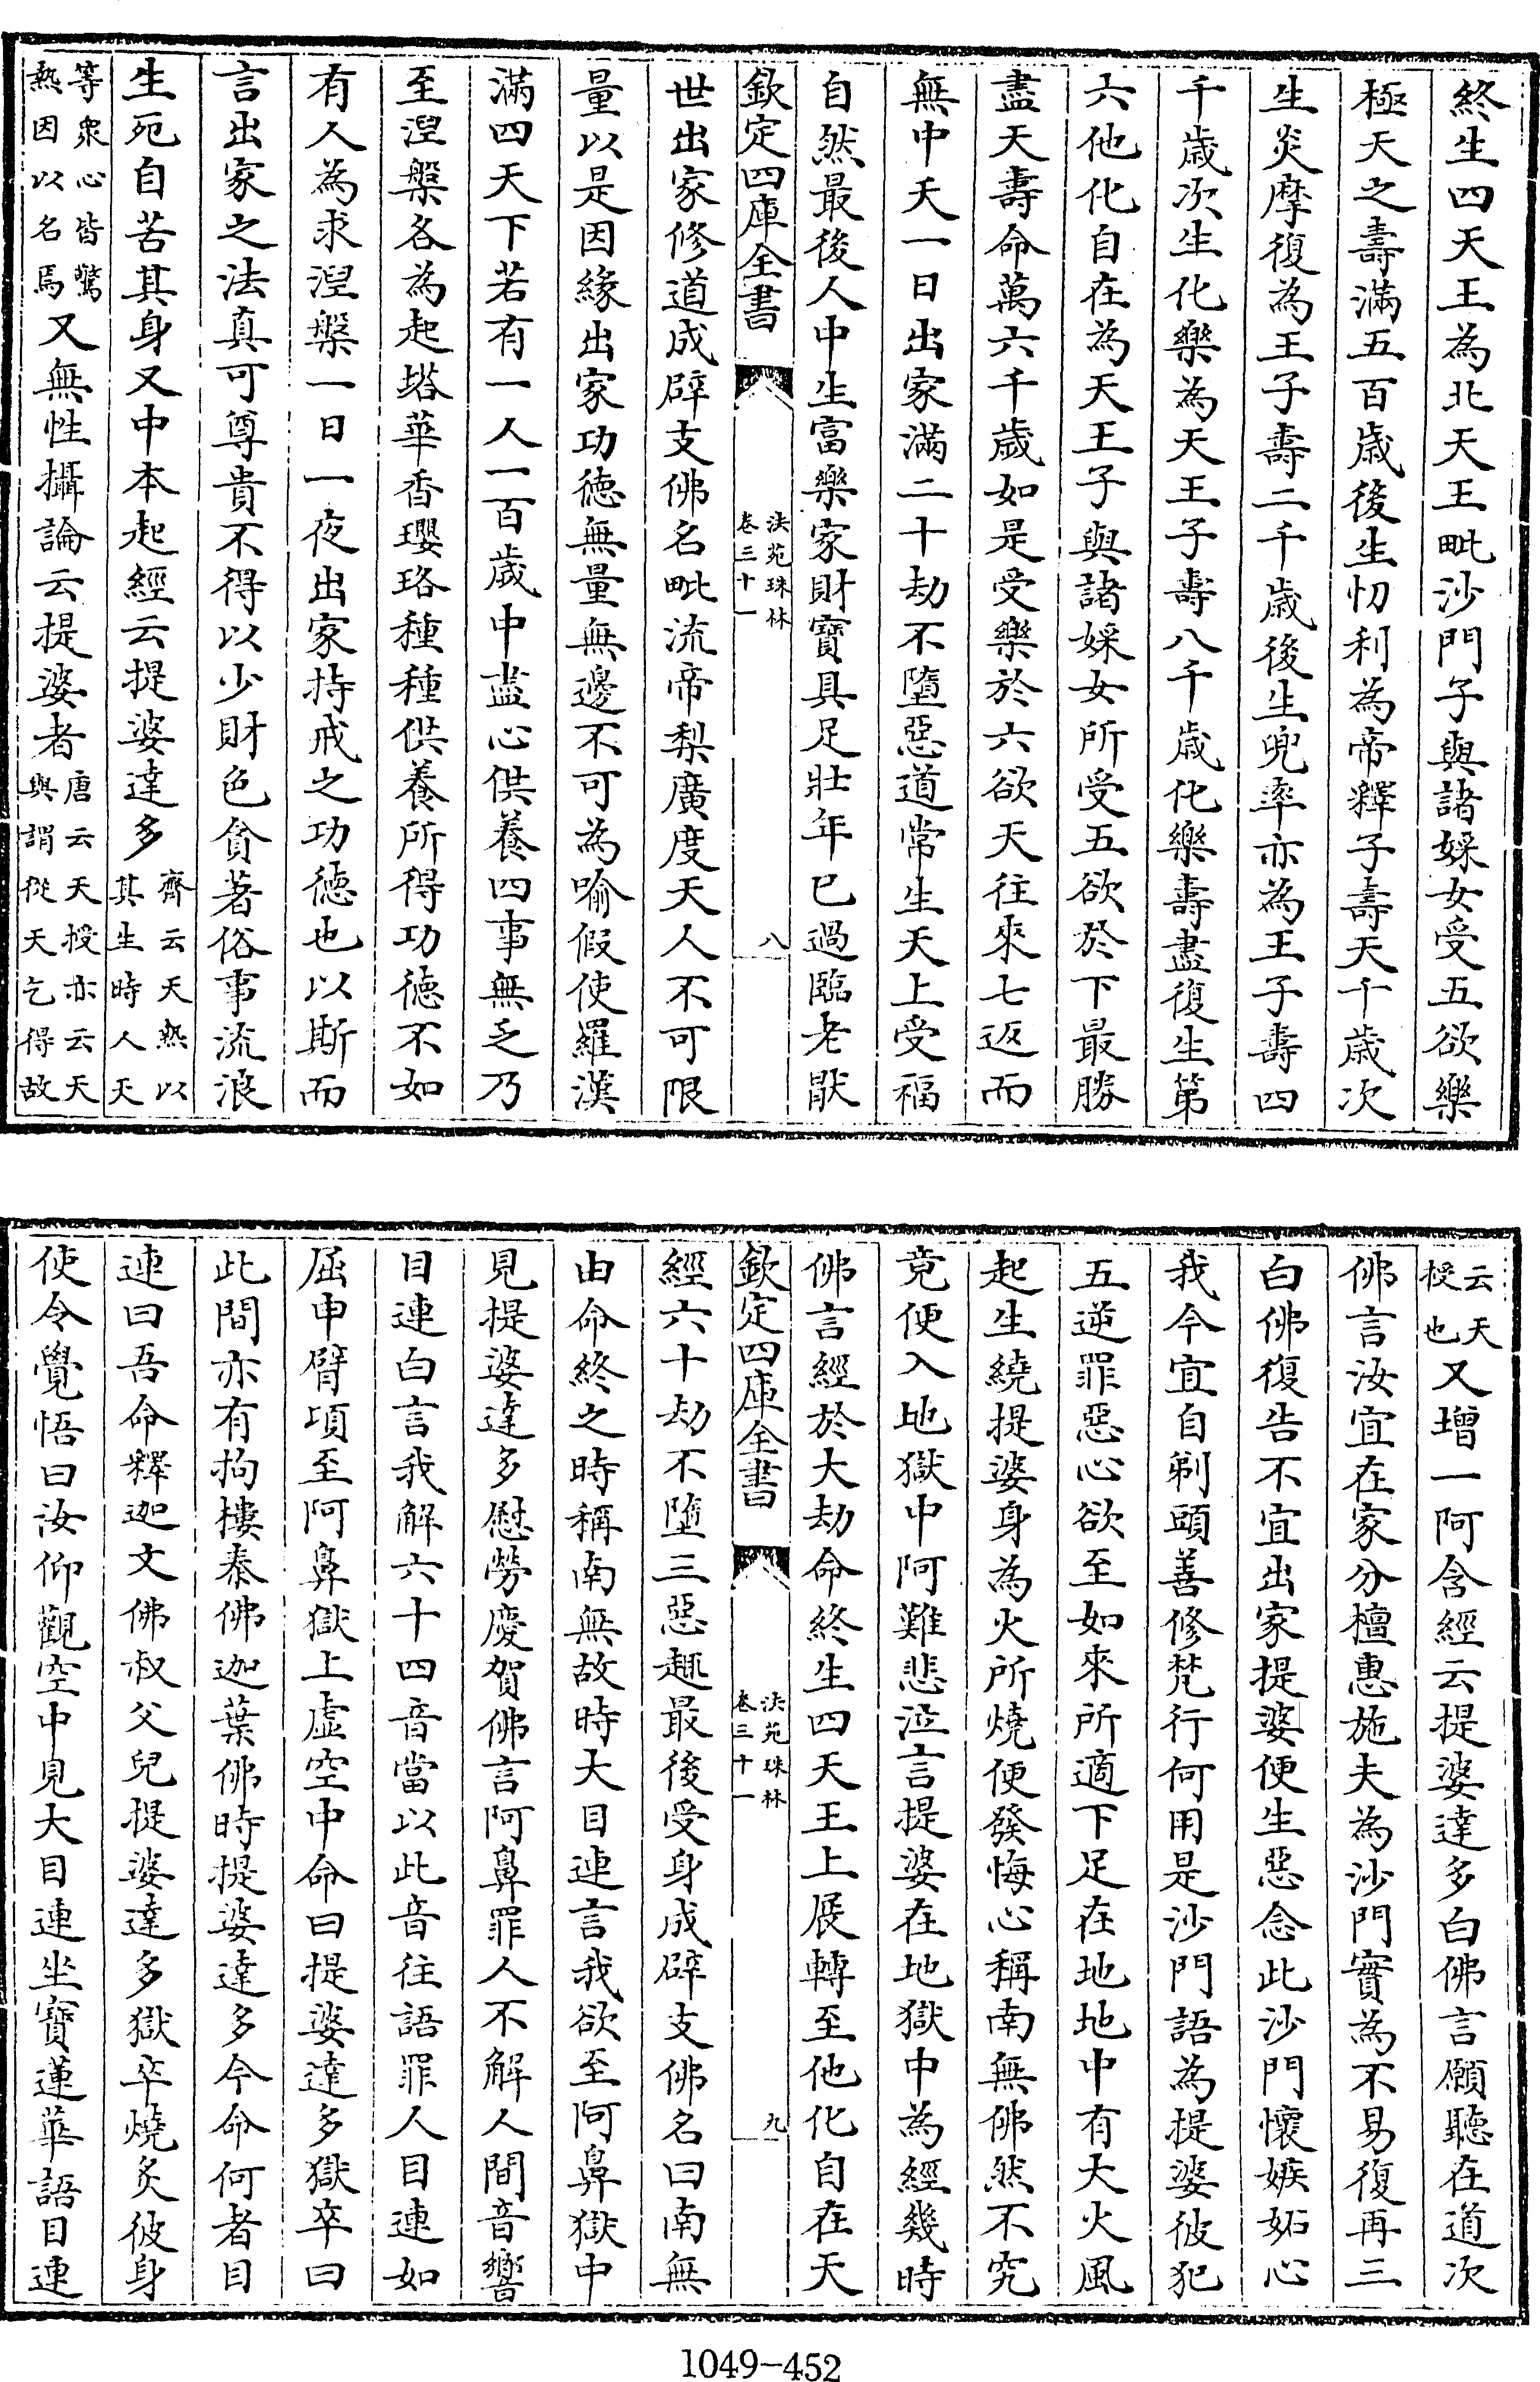 終生四天王為北天王毗沙門子與諸婇女受五欲樂
極天之壽滿五百歲後生忉利為帝釋子壽天千歲次
生炎摩復為王子壽二千歲後生兜率亦為王子壽四
千歲次生化樂為天王子壽八千歲化樂壽盡復生第
六他化自在為天王子與諸婇女所受五欲於下最勝
盡天壽命萬六千歲如是受樂於六欲天往來七返而
無中夭一日出家滿二十劫不墮惡道常生天上受福
自然最後人中生富樂家財寶具足壯年已過臨老厭
欽定四庫全書
法苑珠林
卷三十一
八
世出家修道成辟支佛名毗流帝梨廣度天人不可限
量以是因緣出家功德無量無邊不可為喻假使羅漢
滿四天下若有一人一百歲中盡心供養四事無乏乃
至涅槃各為起塔華香瓔珞種種供養所得功德不如
有人為求涅槃一日一夜出家持戒之功德也以斯而
言出家之法真可尊貴不得以少財色貪著俗事流浪
生死自苦其身又中本起經云提婆達多
齊云天熱以
其生時人天
等衆心皆驚
熱因以名焉
又無性攝論云提婆者
唐云天授亦云天
與謂從天乞得故
云天
授也
又增一阿含經云提婆達多白佛言願聽在道次
佛言汝宜在家分檀惠施夫為沙門實為不易復再三
白佛復告不宜出家提婆便生惡念此沙門懷嫉妬心
我今宜自剃頭善修梵行何用是沙門語為提婆彼犯
五逆罪惡心欲至如來所適下足在地地中有大火風
起生繞提婆身為火所燒便發悔心稱南無佛然不究
竟便入地獄中阿難悲泣言提婆在地獄中為經幾時
佛言經於大劫命終生四天王上展轉至他化自在天
欽定四庫全書
法苑珠林
卷三十一
九
經六十劫不墮三惡趣最後受身成辟支佛名曰南無
由命終之時稱南無故時大目連言我欲至阿鼻獄中
見提婆達多慰勞慶賀佛言阿鼻罪人不解人間音響
目連白言我解六十四音當以此音往語罪人目連如
屈申臂項至阿鼻獄上虛空中命曰提婆達多獄卒曰
此間亦有拘樓秦佛迦葉佛時提婆達多今命何者目
連曰吾命釋迦文佛叔父兒提婆達多獄卒燒炙彼身
使令覺悟曰汝仰觀空中見大目連坐寶蓮華語目連
1049-452